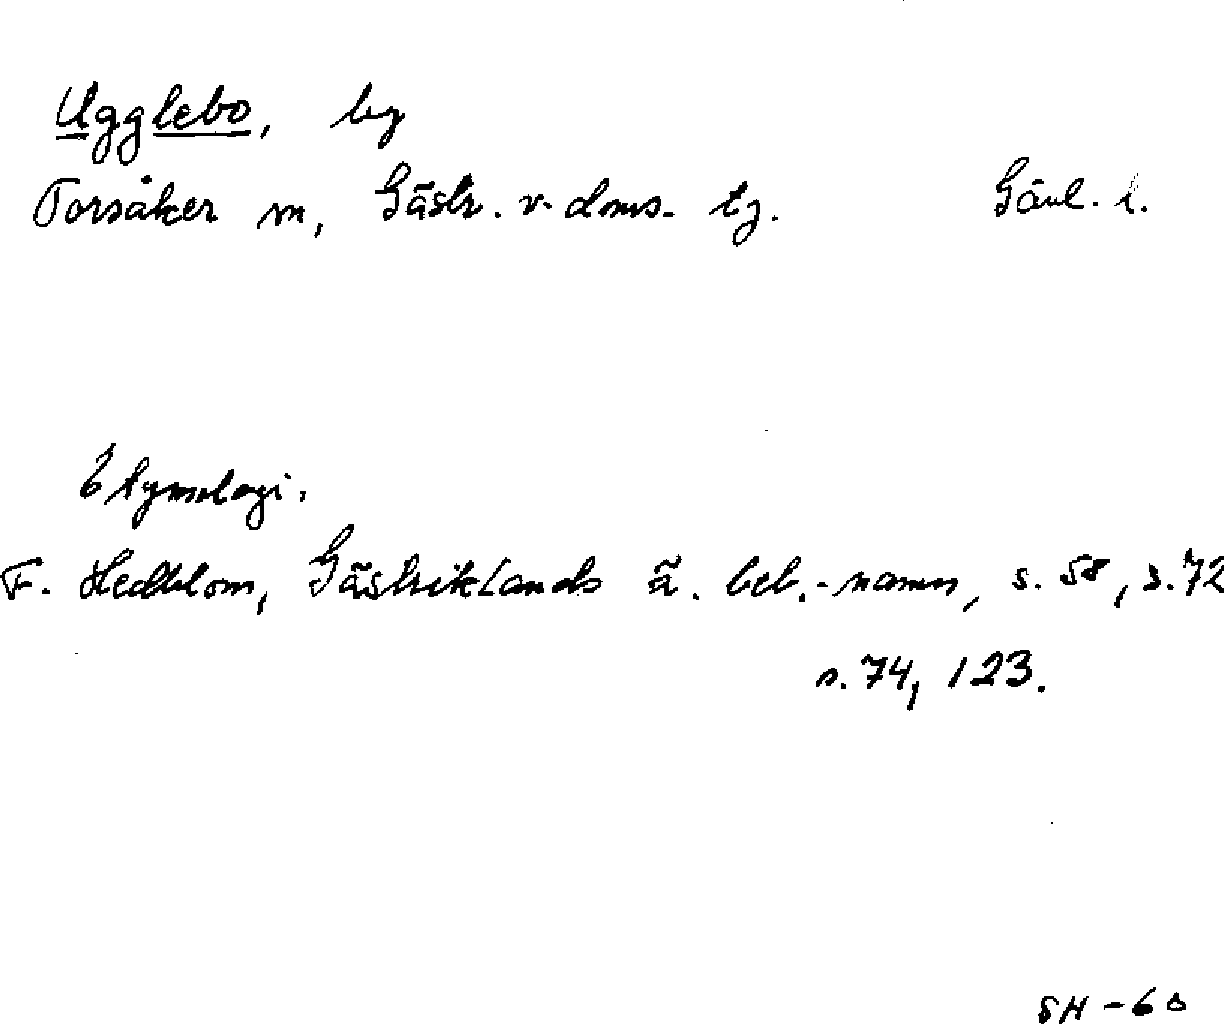 Ugglebo, by
Torsåker sn, Gästr. v. doms. tg. Gävl. l.
Etymologi.
F. Hedblom, Gästriklands ä. beb.-namn, s. 58, s. 72
s. 74, 123.
SH-60